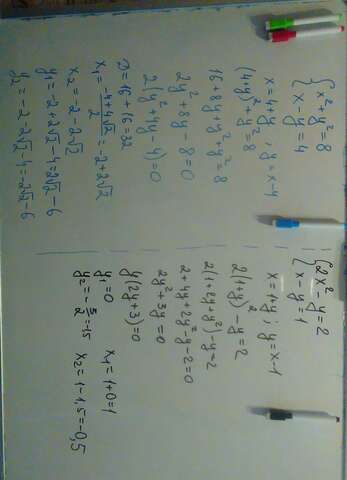 x² + y² = 8
x - y = 4
x = 4+y ; y = x-4
(4+y)² + y² = 8
16 + 8y + y² + y² = 8
2y² + 8y - 8 = 0
2(y² + 4y - 4) = 0
D = 16 + 16 = 32
x₁ = (-4+4√2)/2 = -2+2√2
x₂ = -2-2√2
y₁ = -2+2√2-4 = 2√2-6
y₂ = -2-2√2-4 = -2√2-6
2x² - y = 2
x - y = 1
x = 1+y ; y = x-1
2(1+y)² - y = 2
2(1+2y+y²) - y = 2
2+4y+2y²-y-2=0
2y² + 3y = 0
y(2y+3)=0
y₁ = 0 x₁ = 1+0 = 1
y₂ = -3/2 = -1,5 x₂ = 1-1,5 = -0,5